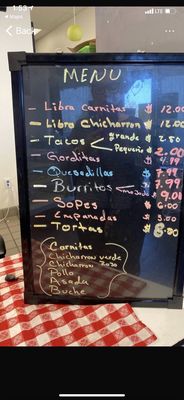 1:53
LTE
Maps
MENU
Libra Carnitas $ 12.00
Libra Chicharron $ 12.00
Tacos grande $ 2.50
Pequeño $ 2.00
Gorditas $ 4.99
Quesadillas $ 7.99
Burritos $ 7.99
mojado $ 9.00
Sopes $ 6.00
Empanadas $ 3.00
Tortas $ 8.00
Carnitas
Chicharron verde
Chicharron Rojo
Pollo
Asada
Buche